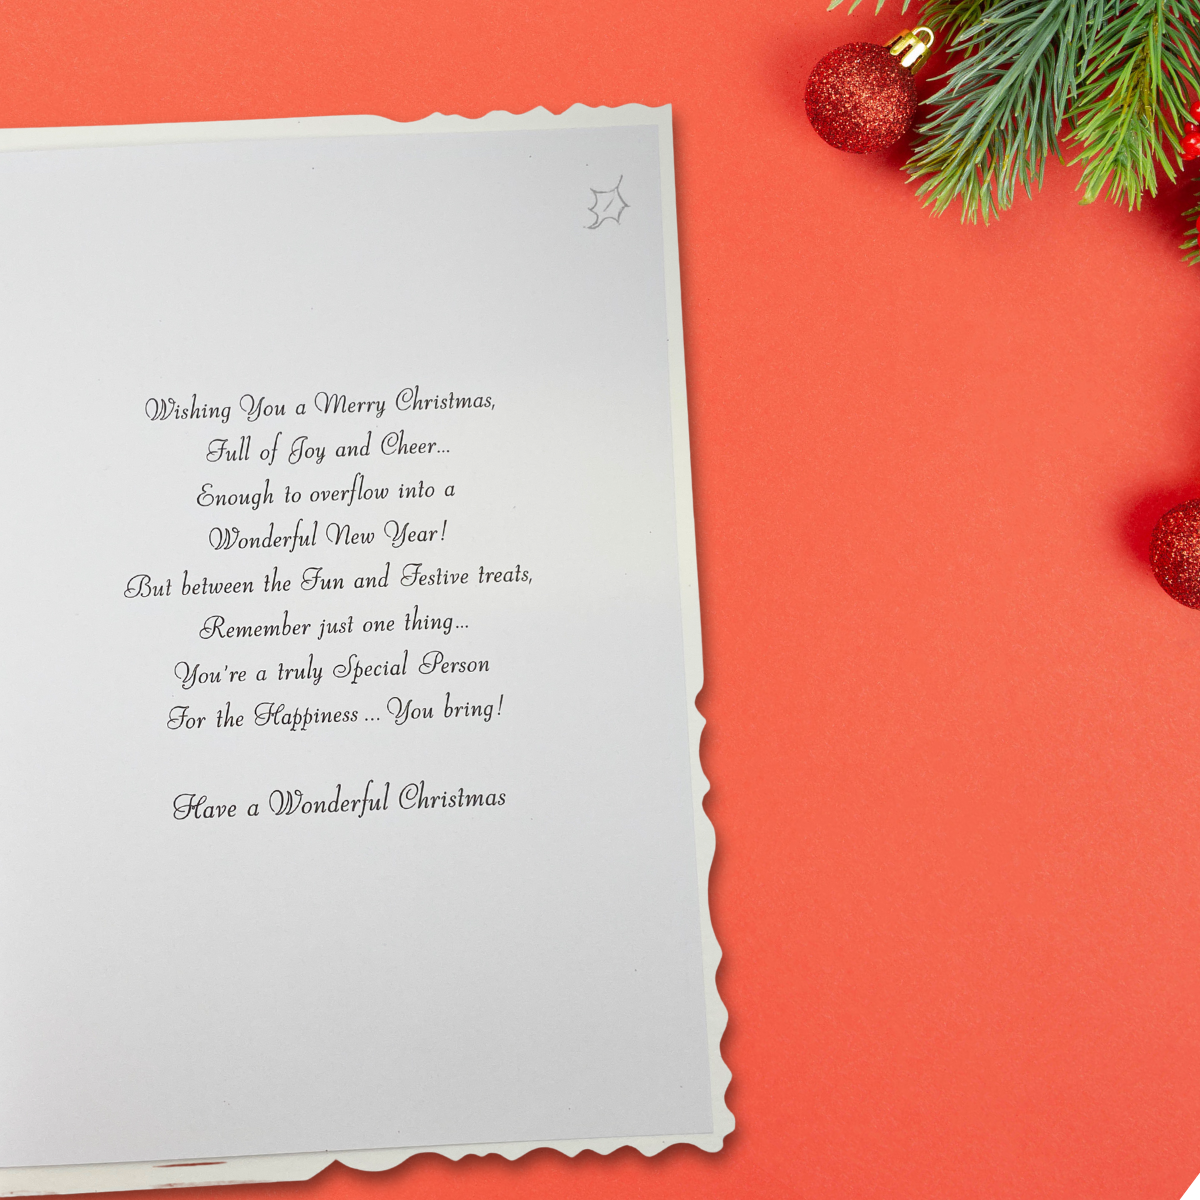 Wishing You a Merry Christmas,
Full of Joy and Cheer...
Enough to overflow into a
Wonderful New Year!
But between the Fun and Festive treats,
Remember just one thing...
You're a truly Special Person
For the Happiness ... You bring!
Have a Wonderful Christmas